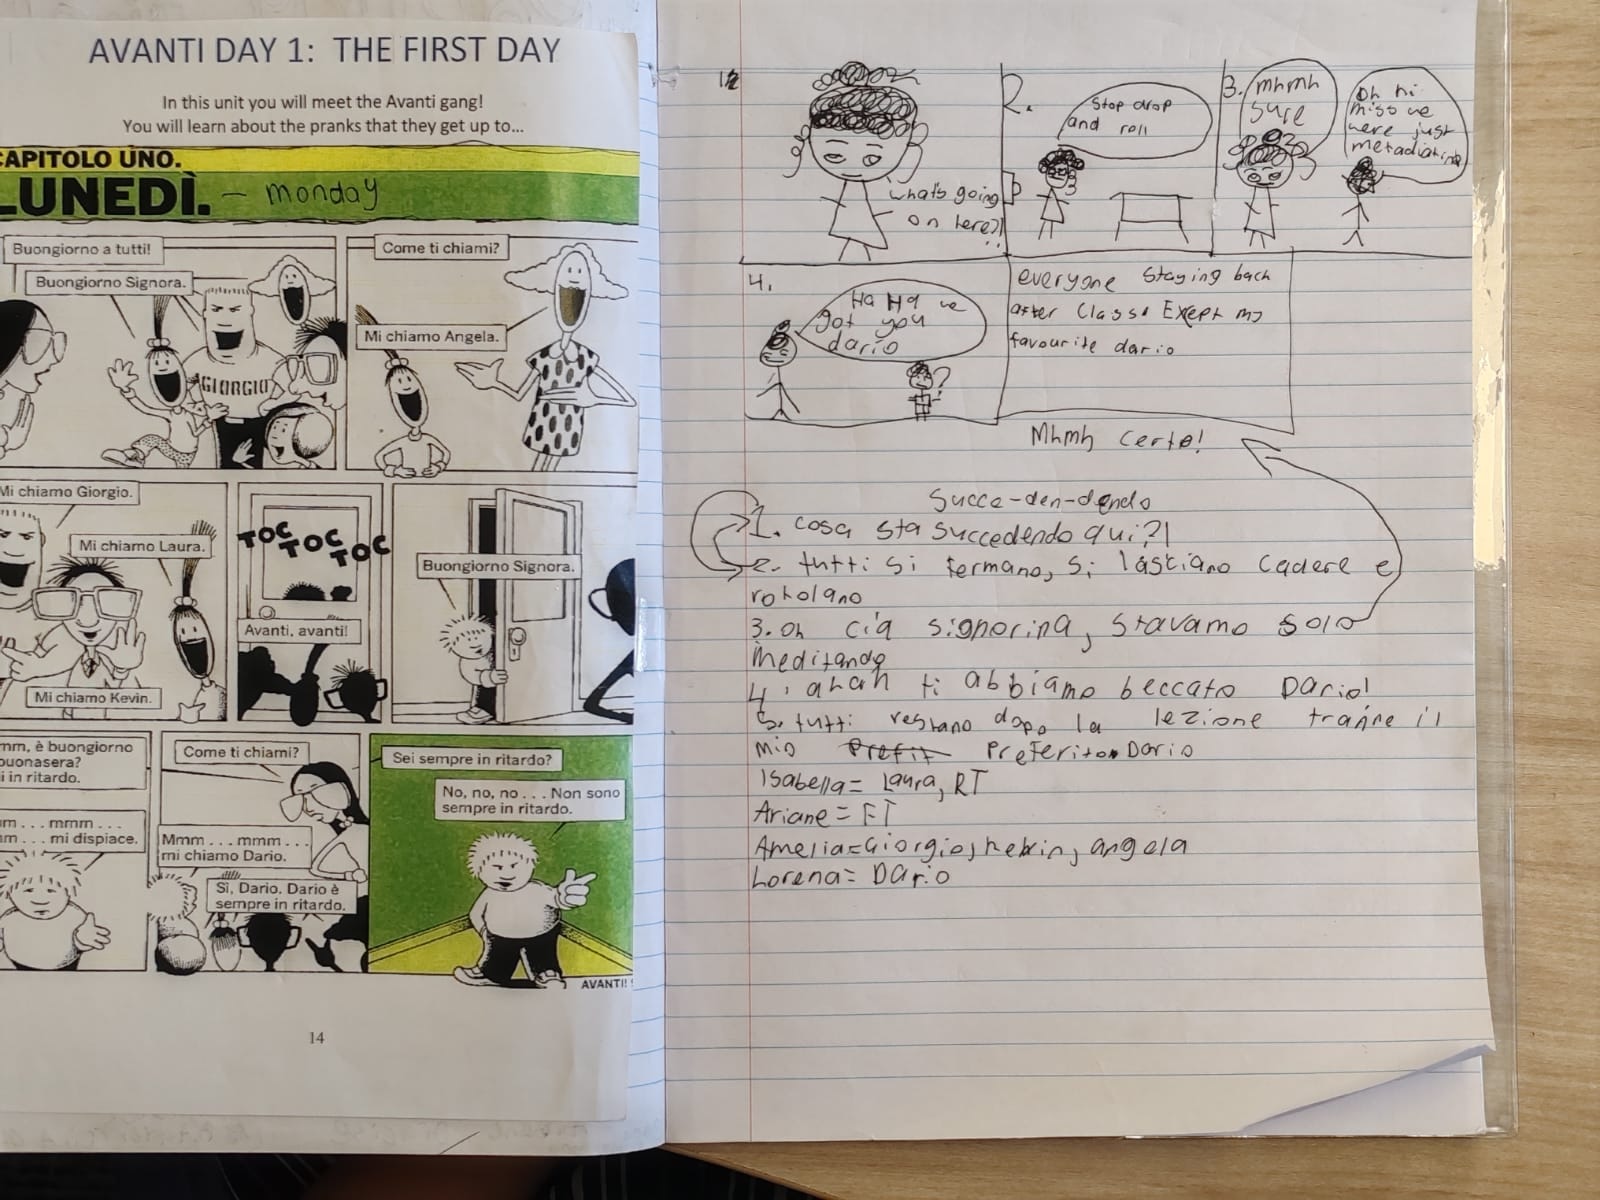 AVANTI DAY 1: THE FIRST DAY
In this unit you will meet the Avanti gang!
You will learn about the pranks that they get up to...
CAPITOLO UNO.
LUNEDÌ. - monday
Buongiorno a tutti!
Buongiorno Signora.
GIORGIO
Come ti chiami?
Mi chiamo Angela.
Mi chiamo Giorgio.
Mi chiamo Laura.
Mi chiamo Kevin.
TOC TOC TOC
Avanti, avanti!
Buongiorno Signora.
mm, è buongiorno
buonasera?
i in ritardo.
m . . . mrnm . . .
m . . . mi dispiace.
Come ti chiami?
Mmm . . . mmm . . .
mi chiamo Dario.
Sì, Dario. Dario è
sempre in ritardo.
Sei sempre in ritardo?
No, no, no . . . Non sono
sempre in ritardo.
AVANTI!
14
1.
what's going
on here?!
2.
Stop drop
and roll
3.
mhmh
sure
Oh hi
miss we
were just
metadiating
4.
Ha Ha we
got you
dario
everyone staying back
after class. Except my
favourite dario
Mhmh certo!
Succe-den-dendo
1. cosa sta succedendo qui?!
2. tutti si fermano, si lastiano cadere e
rotolano
3. Oh cia signorina, stavamo solo
meditando
4. ahah ti abbiamo beccato Dario!
5. tutti restano dopo la lezione tranne il
mio Prefit Preferito Dario
Isabella = Laura, RT
Ariane = FT
Amelia = Giorgio, kevin, angela
Lorena = Dario